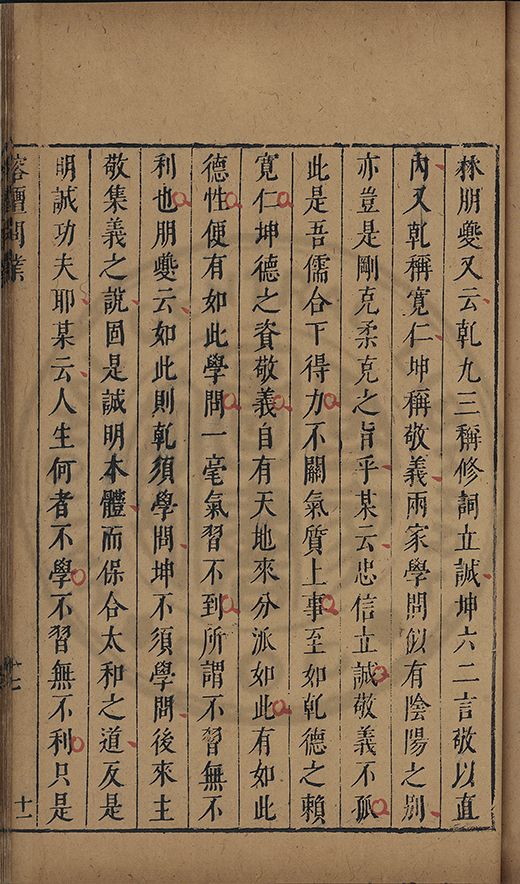 林朋夔又云乾九三稱修詞立誠坤六二言敬以直
內又乾稱寬仁坤稱敬義兩家學問似有陰陽之別
亦豈是剛克柔克之旨乎某云忠信立誠敬義不孤
此是吾儒合下得力不關氣質上事至如乾德之賴
寬仁坤德之資敬義自有天地來分派如此有如此
德性便有如此學問一毫氣習不到所謂不習無不
利也朋夔云如此則乾須學問坤不須學問後來主
敬集義之說固是誠明本體而保合太和之道反是
明誠功夫耶某云人生何者不學不習無不利只是
榕壇問業
十七
十一